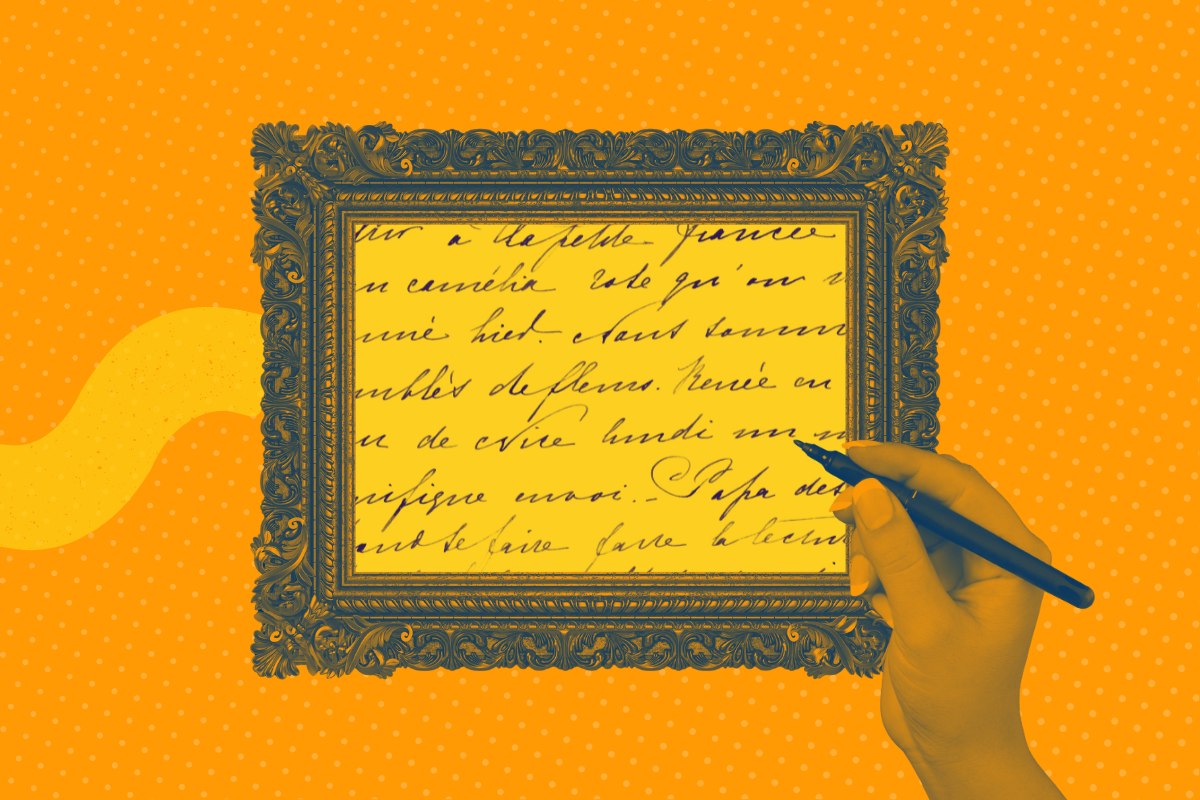 à la petite
n camélia rose qu'on
nné hier. Nous somm
mblés de fleurs. Renée en
de Nice lundi un
nifique envoi. Papa des
faire faire la lectur